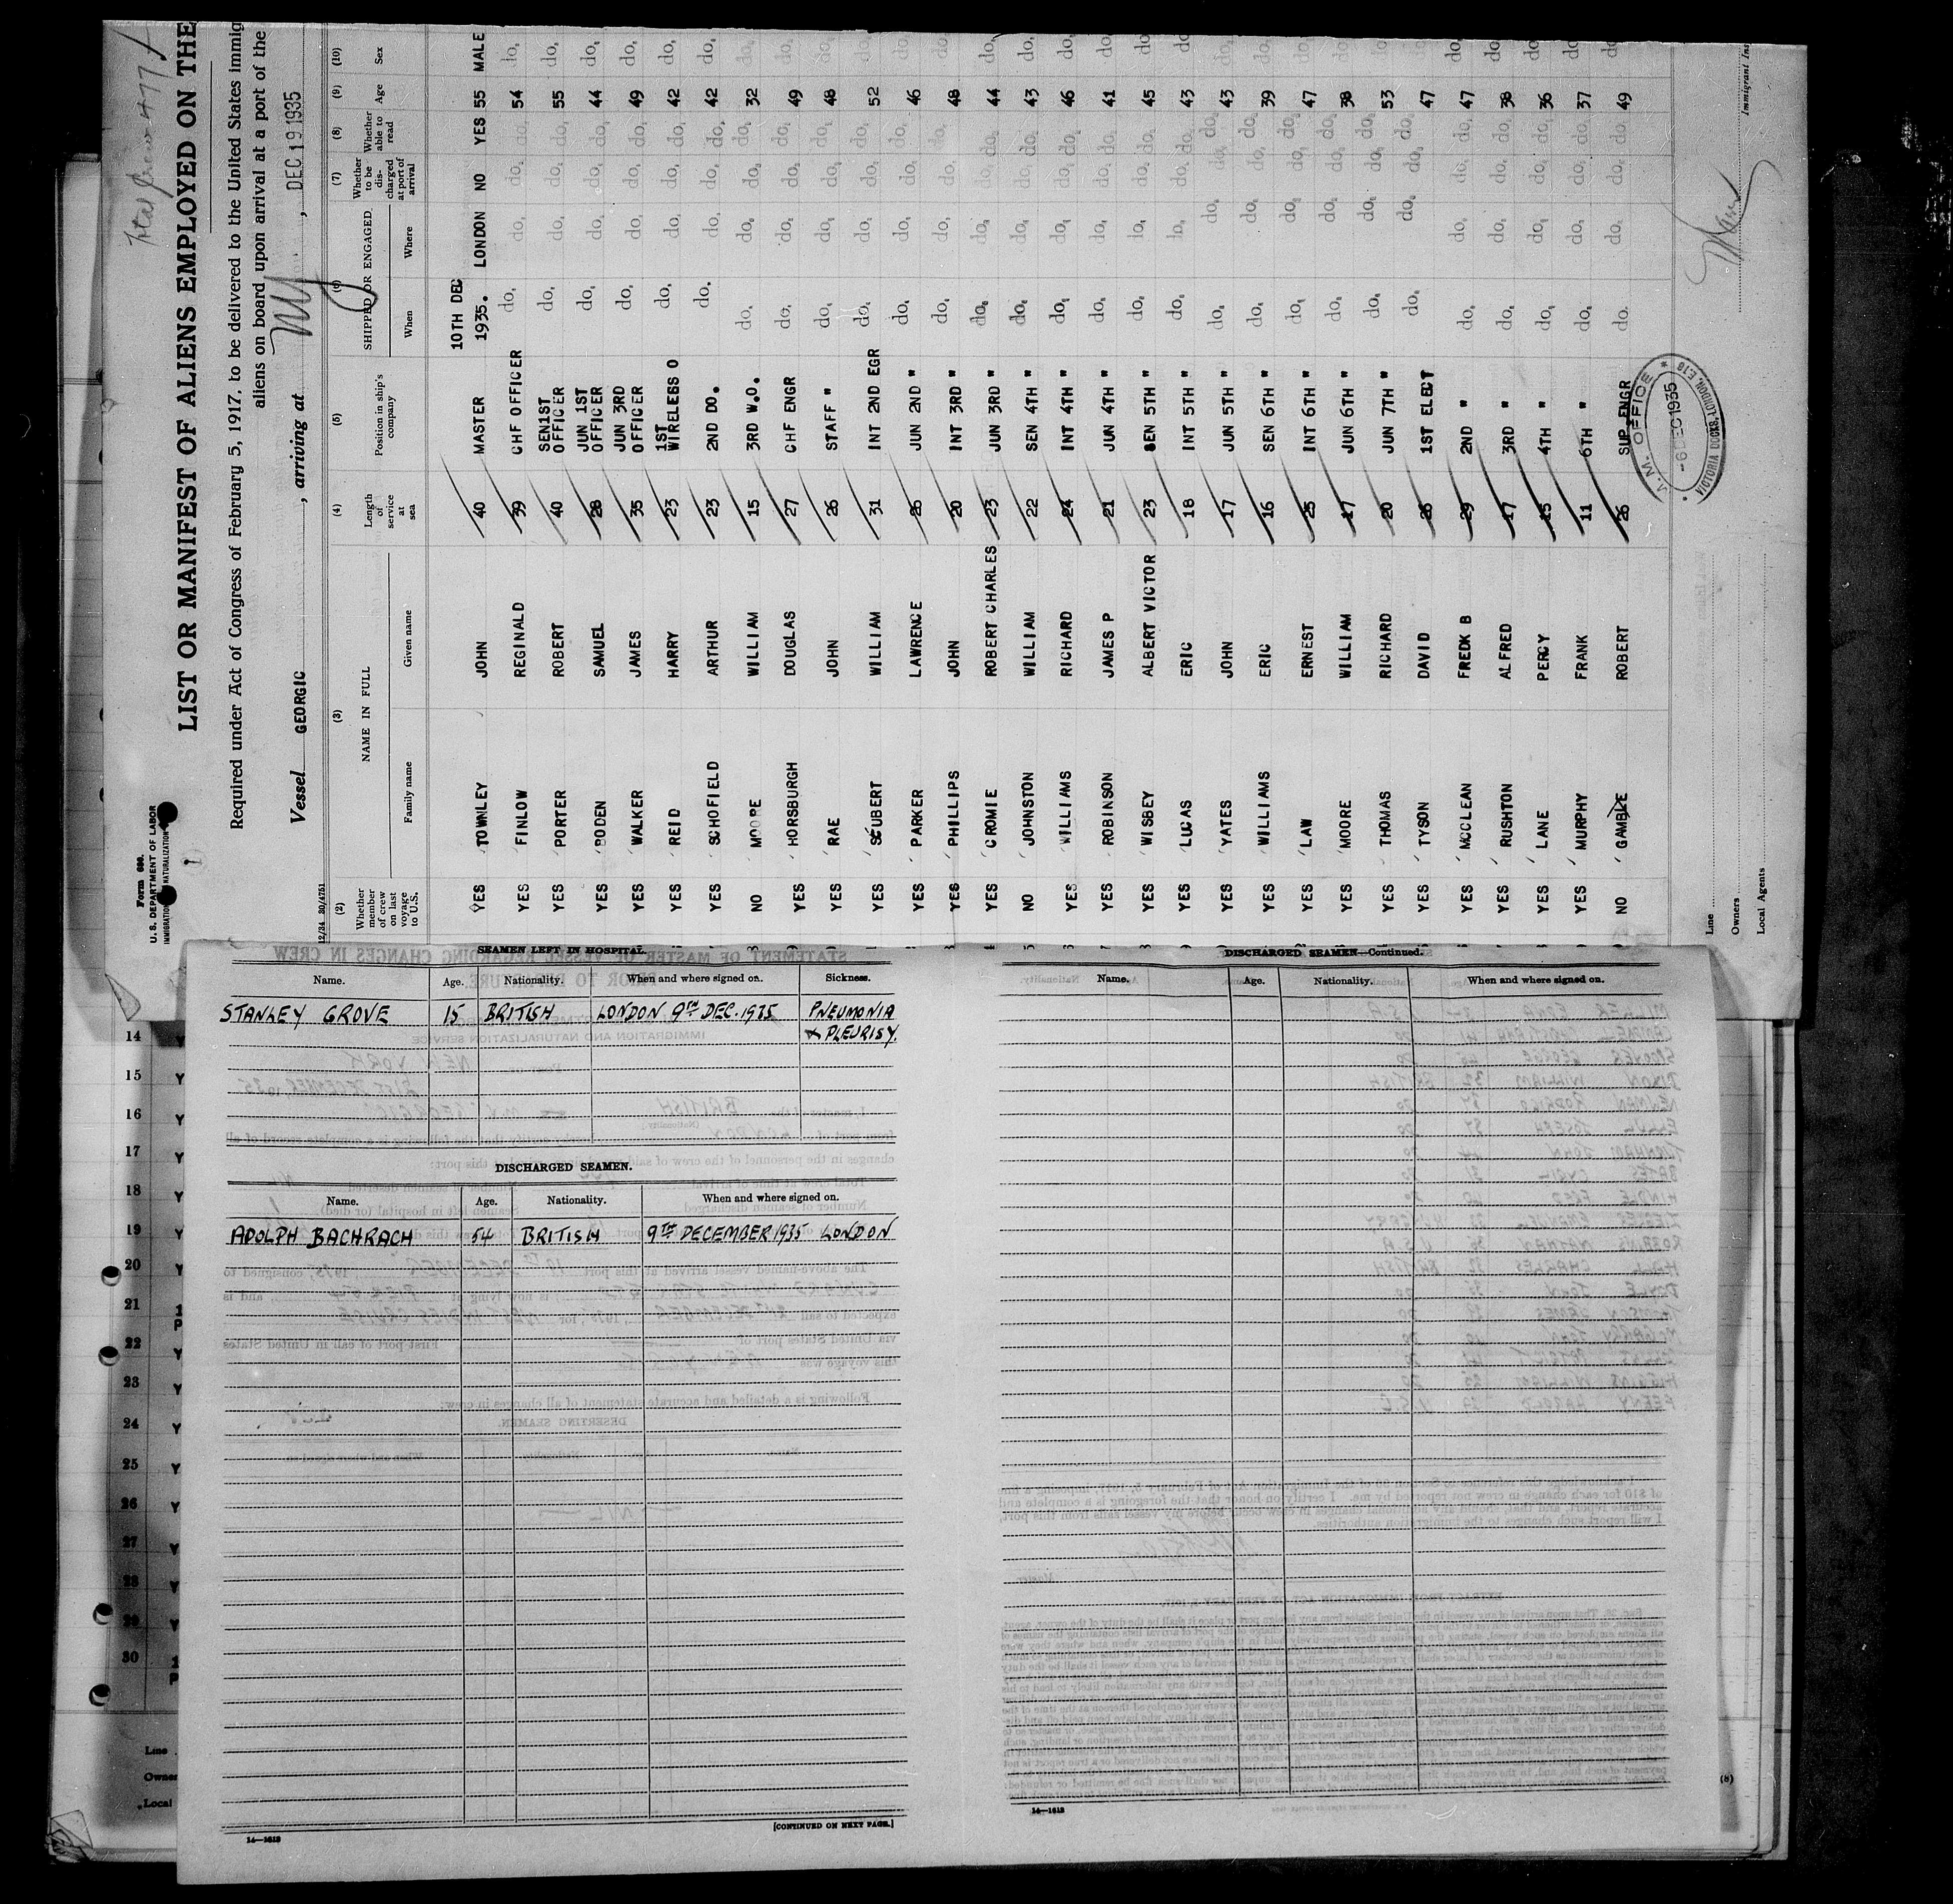 Total Crew 477
Form 680.
U. S. DEPARTMENT OF LABOR
IMMIGRATION NATURALIZATION
LIST OR MANIFEST OF ALIENS EMPLOYED ON THE
Required under Act of Congress of February 5, 1917, to be delivered to the United States immig
aliens on board upon arrival at a port of the
Vessel GEORGIC, arriving at NY, DEC 19 1935
12/34 20/4751
(2) (3) (4) (5) (6) (7) (8) (9) (10)
Whether member of crew on last voyage to U.S. NAME IN FULL Family name Given name Length of service at sea Position in ship's company SHIPPED OR ENGAGED When Where Whether to be discharged at port of arrival Whether able to read Age Sex
YES TOWNLEY JOHN 40 MASTER 10TH DEC 1935. LONDON NO YES 55 MALE
YES FINLOW REGINALD 39 CHF OFFICER do. do. do. do. 54 do.
YES PORTER ROBERT 40 SEN 1ST OFFICER do. do. do. do. 55 do.
YES BODEN SAMUEL 28 JUN 1ST OFFICER do. do. do. do. 44 do.
YES WALKER JAMES 35 JUN 3RD OFFICER do. do. do. do. 49 do.
YES REID HARRY 23 1ST WIRELESS O do. do. do. do. 42 do.
YES SCHOFIELD ARTHUR 23 2ND DO. do. do. do. do. 42 do.
NO MOORE WILLIAM 15 3RD W.O. do. do. do. do. 32 do.
YES HORSBURGH DOUGLAS 27 CHF ENGR do. do. do. do. 49 do.
YES RAE JOHN 26 STAFF " do. do. do. do. 48 do.
YES SCUBERT WILLIAM 31 INT 2ND EGR do. do. do. do. 52 do.
YES PARKER LAWRENCE 26 JUN 2ND " do. do. do. do. 46 do.
YES PHILLIPS JOHN 20 INT 3RD " do. do. do. do. 48 do.
YES CROMIE ROBERT CHARLES 23 JUN 3RD " do. do. do. do. 44 do.
NO JOHNSTON WILLIAM 22 SEN 4TH " do. do. do. do. 43 do.
YES WILLIAMS RICHARD 24 INT 4TH " do. do. do. do. 46 do.
YES ROBINSON JAMES P 21 JUN 4TH " do. do. do. do. 41 do.
YES WISBEY ALBERT VICTOR 23 SEN 5TH " do. do. do. do. 45 do.
YES LUCAS ERIC 18 INT 5TH " do. do. do. do. 43 do.
YES YATES JOHN 17 JUN 5TH " do. do. do. do. 43 do.
YES WILLIAMS ERIC 16 SEN 6TH " do. do. do. do. 39 do.
YES LAW ERNEST 25 INT 6TH " do. do. do. do. 47 do.
YES MOORE WILLIAM 17 JUN 6TH " do. do. do. do. 38 do.
YES THOMAS RICHARD 20 JUN 7TH " do. do. do. do. 53 do.
YES TYSON DAVID 26 1ST ELECT do. do. do. do. 47 do.
YES MCCLEAN FREDK B 29 2ND " do. do. do. do. 47 do.
YES RUSHTON ALFRED 17 3RD " do. do. do. do. 38 do.
YES LANE PERCY 15 4TH " do. do. do. do. 36 do.
YES MURPHY FRANK 11 6TH " do. do. do. do. 37 do.
NO GAMBLE ROBERT 26 SUP ENGR do. do. do. do. 49 do.
M. OFFICE
-6 DEC 1935
VICTORIA DOCKS, LONDON, E.16
Line
Owners
Local Agents
Immigrant Ins
SEAMEN LEFT IN HOSPITAL.
Name. Age. Nationality. When and where signed on. Sickness.
STANLEY GROVE 15 BRITISH LONDON 9TH DEC. 1935 PNEUMONIA
& PLEURISY.
DISCHARGED SEAMEN.
Name. Age. Nationality. When and where signed on.
ADOLPH BACHRACH 54 BRITISH 9TH DECEMBER 1935 LONDON
14—1613
[CONTINUED ON NEXT PAGE.]
DISCHARGED SEAMEN—Continued.
Name. Age. Nationality. When and where signed on.
14—1613
14 Y
15 Y
16 Y
17 Y
18 Y
19 Y
20 Y
21 1
P
22 Y
23 Y
24 Y
25 Y
26 Y
27 Y
28 Y
29 Y
30 1
P
Line
Owner
Local
(8)